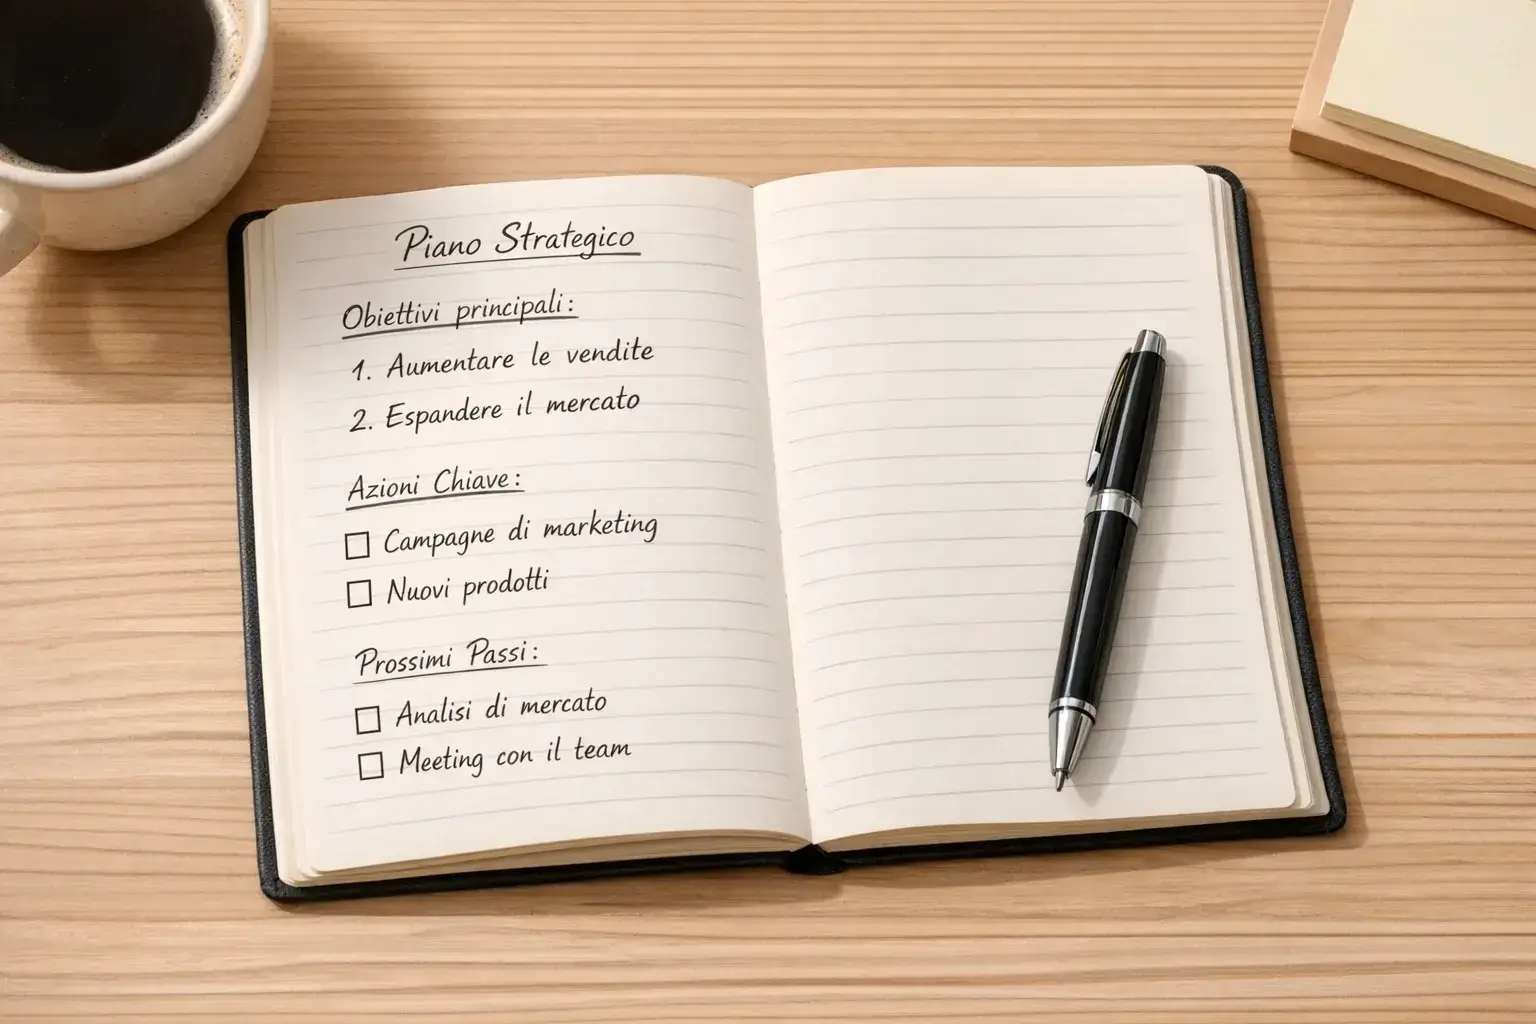 Piano Strategico
Obiettivi principali:
1. Aumentare le vendite
2. Espandere il mercato
Azioni Chiave:
☐ Campagne di marketing
☐ Nuovi prodotti
Prossimi Passi:
☐ Analisi di mercato
☐ Meeting con il team